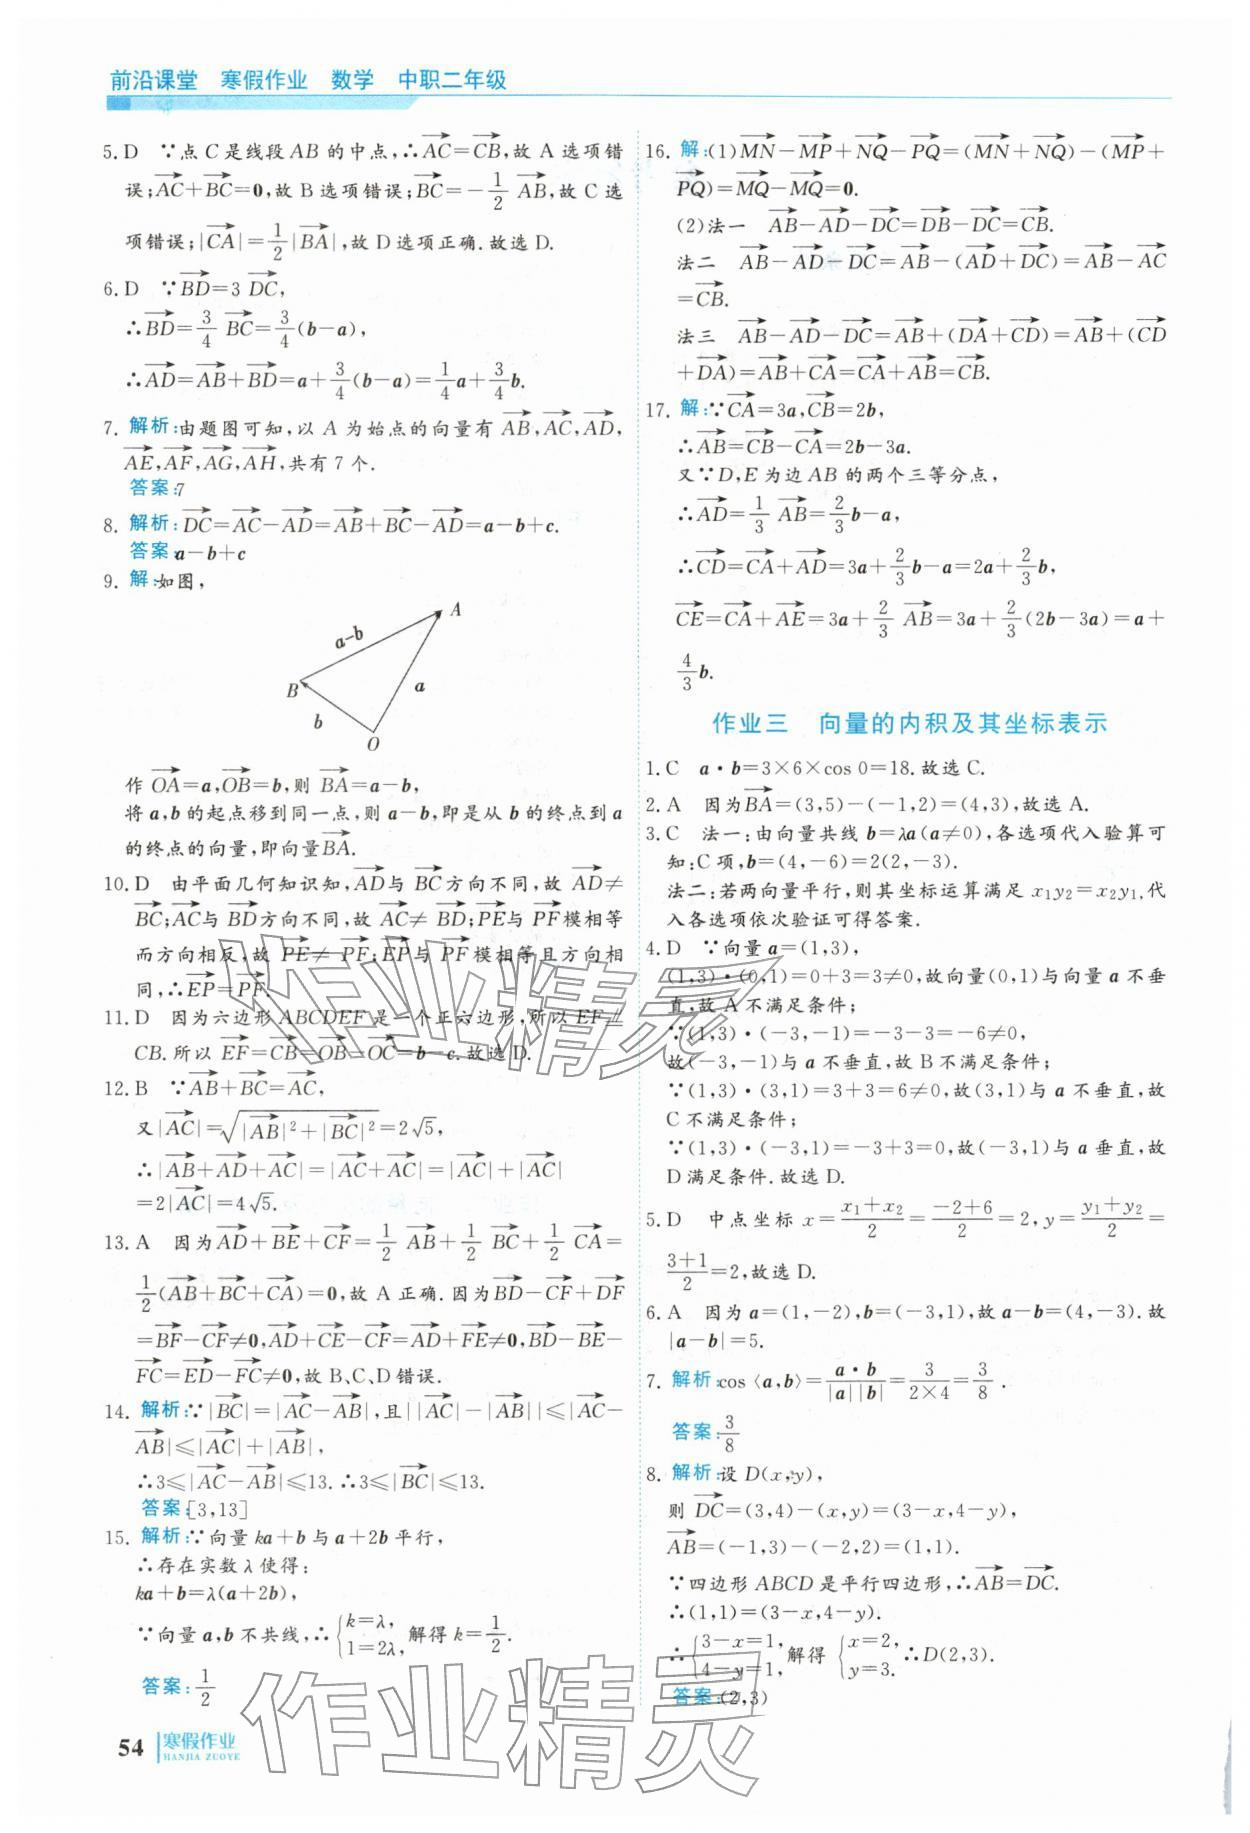 前沿课堂 寒假作业 数学 中职二年级
5. D ∵点 C 是线段 AB 的中点,∴$\overrightarrow{AC}=\overrightarrow{CB}$,故 A 选项错
误;$\overrightarrow{AC}+\overrightarrow{BC}=\mathbf{0}$,故 B 选项错误;$\overrightarrow{BC}=-\frac{1}{2}\overrightarrow{AB}$,故 C 选
项错误;$|\overrightarrow{CA}|=\frac{1}{2}|\overrightarrow{BA}|$,故 D 选项正确.故选 D.
6. D ∵$\overrightarrow{BD}=3\overrightarrow{DC}$,
∴$\overrightarrow{BD}=\frac{3}{4}\overrightarrow{BC}=\frac{3}{4}(b-a)$,
∴$\overrightarrow{AD}=\overrightarrow{AB}+\overrightarrow{BD}=a+\frac{3}{4}(b-a)=\frac{1}{4}a+\frac{3}{4}b$.
7. 解析:由题图可知,以 A 为始点的向量有 $\overrightarrow{AB},\overrightarrow{AC},\overrightarrow{AD}$,
$\overrightarrow{AE},\overrightarrow{AF},\overrightarrow{AG},\overrightarrow{AH}$,共有 7 个.
答案:7
8. 解析:$\overrightarrow{DC}=\overrightarrow{AC}-\overrightarrow{AD}=\overrightarrow{AB}+\overrightarrow{BC}-\overrightarrow{AD}=a-b+c$.
答案:a-b+c
9. 解:如图,
A
a-b
B
a
b
O
作 $\overrightarrow{OA}=a,\overrightarrow{OB}=b$,则 $\overrightarrow{BA}=a-b$,
将 a,b 的起点移到同一点,则 a-b,即是从 b 的终点到 a
的终点的向量,即向量$\overrightarrow{BA}$.
10. D 由平面几何知识知,$\overrightarrow{AD}$与 $\overrightarrow{BC}$方向不同,故 $\overrightarrow{AD}\neq$
$\overrightarrow{BC}$;$\overrightarrow{AC}$与 $\overrightarrow{BD}$方向不同,故 $\overrightarrow{AC}\neq\overrightarrow{BD}$;$\overrightarrow{PE}$与 $\overrightarrow{PF}$模相等
而方向相反,故 $\overrightarrow{PE}\neq\overrightarrow{PF}$;$\overrightarrow{EP}$与 $\overrightarrow{PF}$模相等且方向相
同,∴$\overrightarrow{EP}=\overrightarrow{PF}$.
11. D 因为六边形 ABCDEF 是一个正六边形,所以 EF∥
CB.所以 $\overrightarrow{EF}=\overrightarrow{CB}=\overrightarrow{OB}-\overrightarrow{OC}=b-c$.故选 D.
12. B ∵$\overrightarrow{AB}+\overrightarrow{BC}=\overrightarrow{AC}$,
又$|\overrightarrow{AC}|=\sqrt{|\overrightarrow{AB}|^2+|\overrightarrow{BC}|^2}=2\sqrt{5}$,
∴$|\overrightarrow{AB}+\overrightarrow{AD}+\overrightarrow{AC}|=|\overrightarrow{AC}+\overrightarrow{AC}|=|\overrightarrow{AC}|+|\overrightarrow{AC}|$
$=2|\overrightarrow{AC}|=4\sqrt{5}$.
13. A 因为 $\overrightarrow{AD}+\overrightarrow{BE}+\overrightarrow{CF}=\frac{1}{2}\overrightarrow{AB}+\frac{1}{2}\overrightarrow{BC}+\frac{1}{2}\overrightarrow{CA}=$
$\frac{1}{2}(\overrightarrow{AB}+\overrightarrow{BC}+\overrightarrow{CA})=\mathbf{0}$,故 A 正确.因为 $\overrightarrow{BD}-\overrightarrow{CF}+\overrightarrow{DF}$
$=\overrightarrow{BF}-\overrightarrow{CF}\neq\mathbf{0}$,$\overrightarrow{AD}+\overrightarrow{CE}-\overrightarrow{CF}=\overrightarrow{AD}+\overrightarrow{FE}\neq\mathbf{0}$,$\overrightarrow{BD}-\overrightarrow{BE}-$
$\overrightarrow{FC}=\overrightarrow{ED}-\overrightarrow{FC}\neq\mathbf{0}$,故 B、C、D 错误.
14. 解析:∵$|\overrightarrow{BC}|=|\overrightarrow{AC}-\overrightarrow{AB}|$,且$||\overrightarrow{AC}|-|\overrightarrow{AB}||\leqslant|\overrightarrow{AC}-$
$\overrightarrow{AB}|\leqslant|\overrightarrow{AC}|+|\overrightarrow{AB}|$,
∴$3\leqslant|\overrightarrow{AC}-\overrightarrow{AB}|\leqslant13$.∴$3\leqslant|\overrightarrow{BC}|\leqslant13$.
答案:[3,13]
15. 解析:∵向量 ka+b 与 a+2b 平行,
∴存在实数 λ 使得:
ka+b=λ(a+2b),
∵向量 a,b 不共线,∴$\begin{cases}k=\lambda,\\1=2\lambda,\end{cases}$解得 $k=\frac{1}{2}$.
答案:$\frac{1}{2}$
16. 解:(1)$\overrightarrow{MN}-\overrightarrow{MP}+\overrightarrow{NQ}-\overrightarrow{PQ}=(\overrightarrow{MN}+\overrightarrow{NQ})-(\overrightarrow{MP}+$
$\overrightarrow{PQ})=\overrightarrow{MQ}-\overrightarrow{MQ}=\mathbf{0}$.
(2)法一 $\overrightarrow{AB}-\overrightarrow{AD}-\overrightarrow{DC}=\overrightarrow{DB}-\overrightarrow{DC}=\overrightarrow{CB}$.
法二 $\overrightarrow{AB}-\overrightarrow{AD}-\overrightarrow{DC}=\overrightarrow{AB}-(\overrightarrow{AD}+\overrightarrow{DC})=\overrightarrow{AB}-\overrightarrow{AC}$
$=\overrightarrow{CB}$.
法三 $\overrightarrow{AB}-\overrightarrow{AD}-\overrightarrow{DC}=\overrightarrow{AB}+(\overrightarrow{DA}+\overrightarrow{CD})=\overrightarrow{AB}+(\overrightarrow{CD}$
$+\overrightarrow{DA})=\overrightarrow{AB}+\overrightarrow{CA}=\overrightarrow{CA}+\overrightarrow{AB}=\overrightarrow{CB}$.
17. 解:∵$\overrightarrow{CA}=3a,\overrightarrow{CB}=2b$,
∴$\overrightarrow{AB}=\overrightarrow{CB}-\overrightarrow{CA}=2b-3a$.
又∵D,E 为边 AB 的两个三等分点,
∴$\overrightarrow{AD}=\frac{1}{3}\overrightarrow{AB}=\frac{2}{3}b-a$,
∴$\overrightarrow{CD}=\overrightarrow{CA}+\overrightarrow{AD}=3a+\frac{2}{3}b-a=2a+\frac{2}{3}b$,
$\overrightarrow{CE}=\overrightarrow{CA}+\overrightarrow{AE}=3a+\frac{2}{3}\overrightarrow{AB}=3a+\frac{2}{3}(2b-3a)=a+$
$\frac{4}{3}b$.
作业三 向量的内积及其坐标表示
1. C a·b=3×6×cos 0=18.故选 C.
2. A 因为$\overrightarrow{BA}$=(3,5)-(-1,2)=(4,3),故选 A.
3. C 法一:由向量共线 b=λa(a≠0),各选项代入验算可
知:C 项,b=(4,-6)=2(2,-3).
法二:若两向量平行,则其坐标运算满足 $x_1y_2=x_2y_1$,代
入各选项依次验证可得答案.
4. D ∵向量 a=(1,3),
(1,3)·(0,1)=0+3=3≠0,故向量(0,1)与向量 a 不垂
直,故 A 不满足条件;
∵(1,3)·(-3,-1)=-3-3=-6≠0,
故(-3,-1)与 a 不垂直,故 B 不满足条件;
∵(1,3)·(3,1)=3+3=6≠0,故(3,1)与 a 不垂直,故
C 不满足条件;
∵(1,3)·(-3,1)=-3+3=0,故(-3,1)与 a 垂直,故
D 满足条件.故选 D.
5. D 中点坐标 $x=\frac{x_1+x_2}{2}=\frac{-2+6}{2}=2,y=\frac{y_1+y_2}{2}=$
$\frac{3+1}{2}=2$,故选 D.
6. A 因为 a=(1,-2),b=(-3,1),故 a-b=(4,-3).故
|a-b|=5.
7. 解析:cos〈a,b〉$=\frac{a·b}{|a||b|}=\frac{3}{2×4}=\frac{3}{8}$.
答案:$\frac{3}{8}$
8. 解析:设 D(x,y),
则 $\overrightarrow{DC}$=(3,4)-(x,y)=(3-x,4-y),
$\overrightarrow{AB}$=(-1,3)-(-2,2)=(1,1).
∵四边形 ABCD 是平行四边形,∴$\overrightarrow{AB}=\overrightarrow{DC}$.
∴(1,1)=(3-x,4-y).
∴$\begin{cases}3-x=1,\\4-y=1,\end{cases}$解得 $\begin{cases}x=2,\\y=3.\end{cases}$∴D(2,3).
答案:(2,3)
作业精灵
作业精灵
54 寒假作业
HANJIA ZUOYE